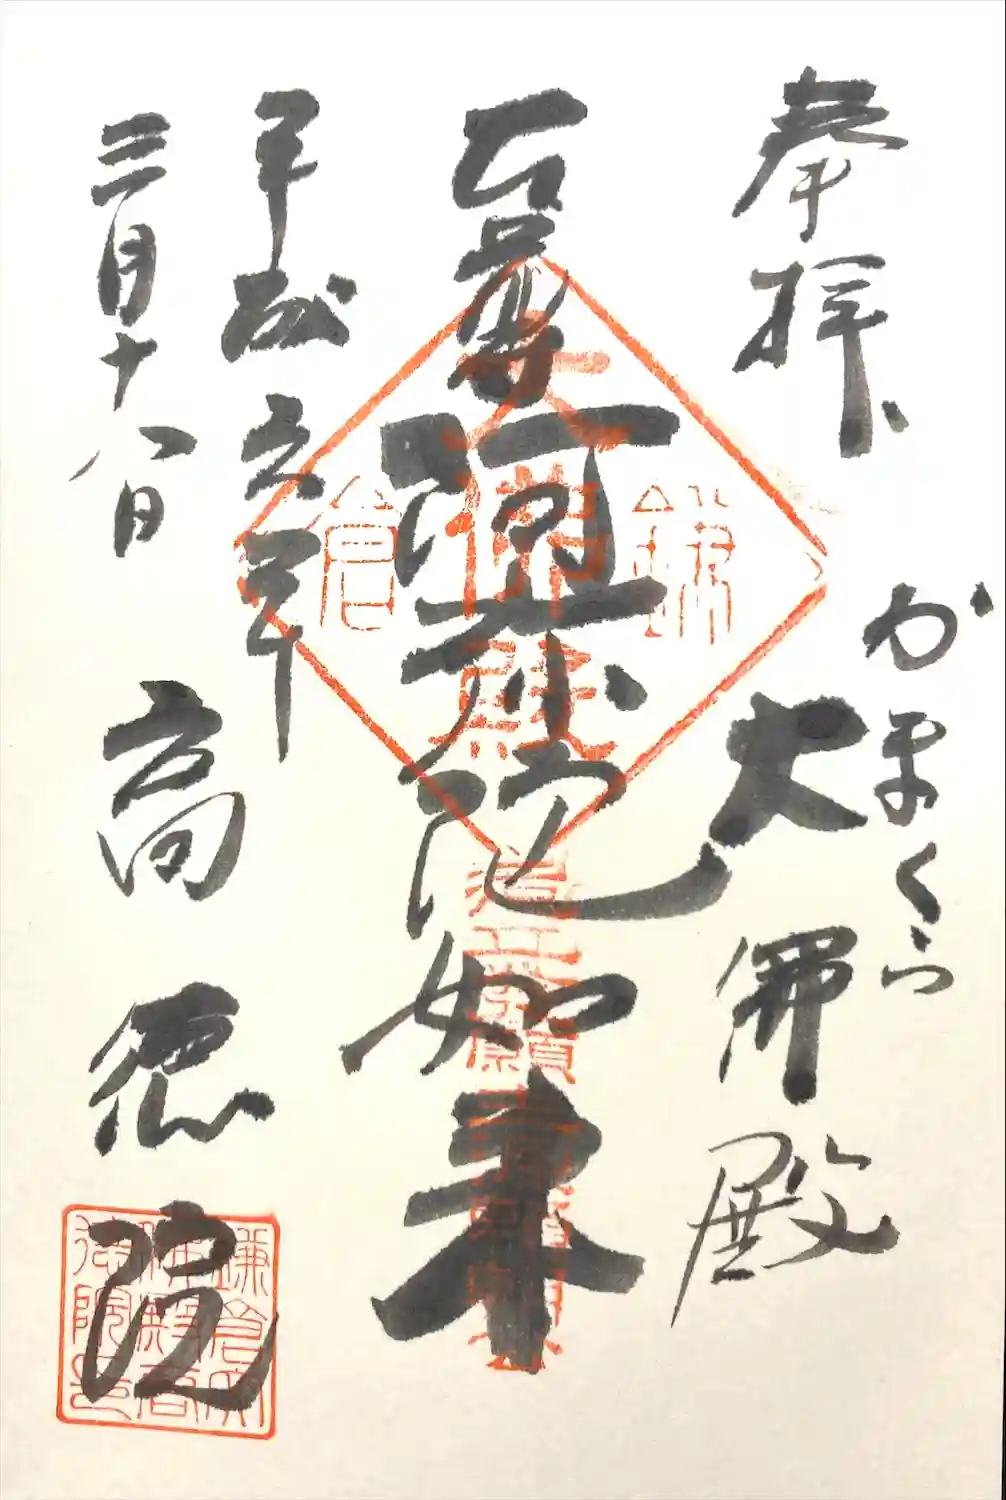 奉拝
かまくら
大佛殿
尊阿弥陀如来
平成 年
三月十八日
高徳院
鎌倉
大佛殿
鎌倉大
佛殿高
徳院印